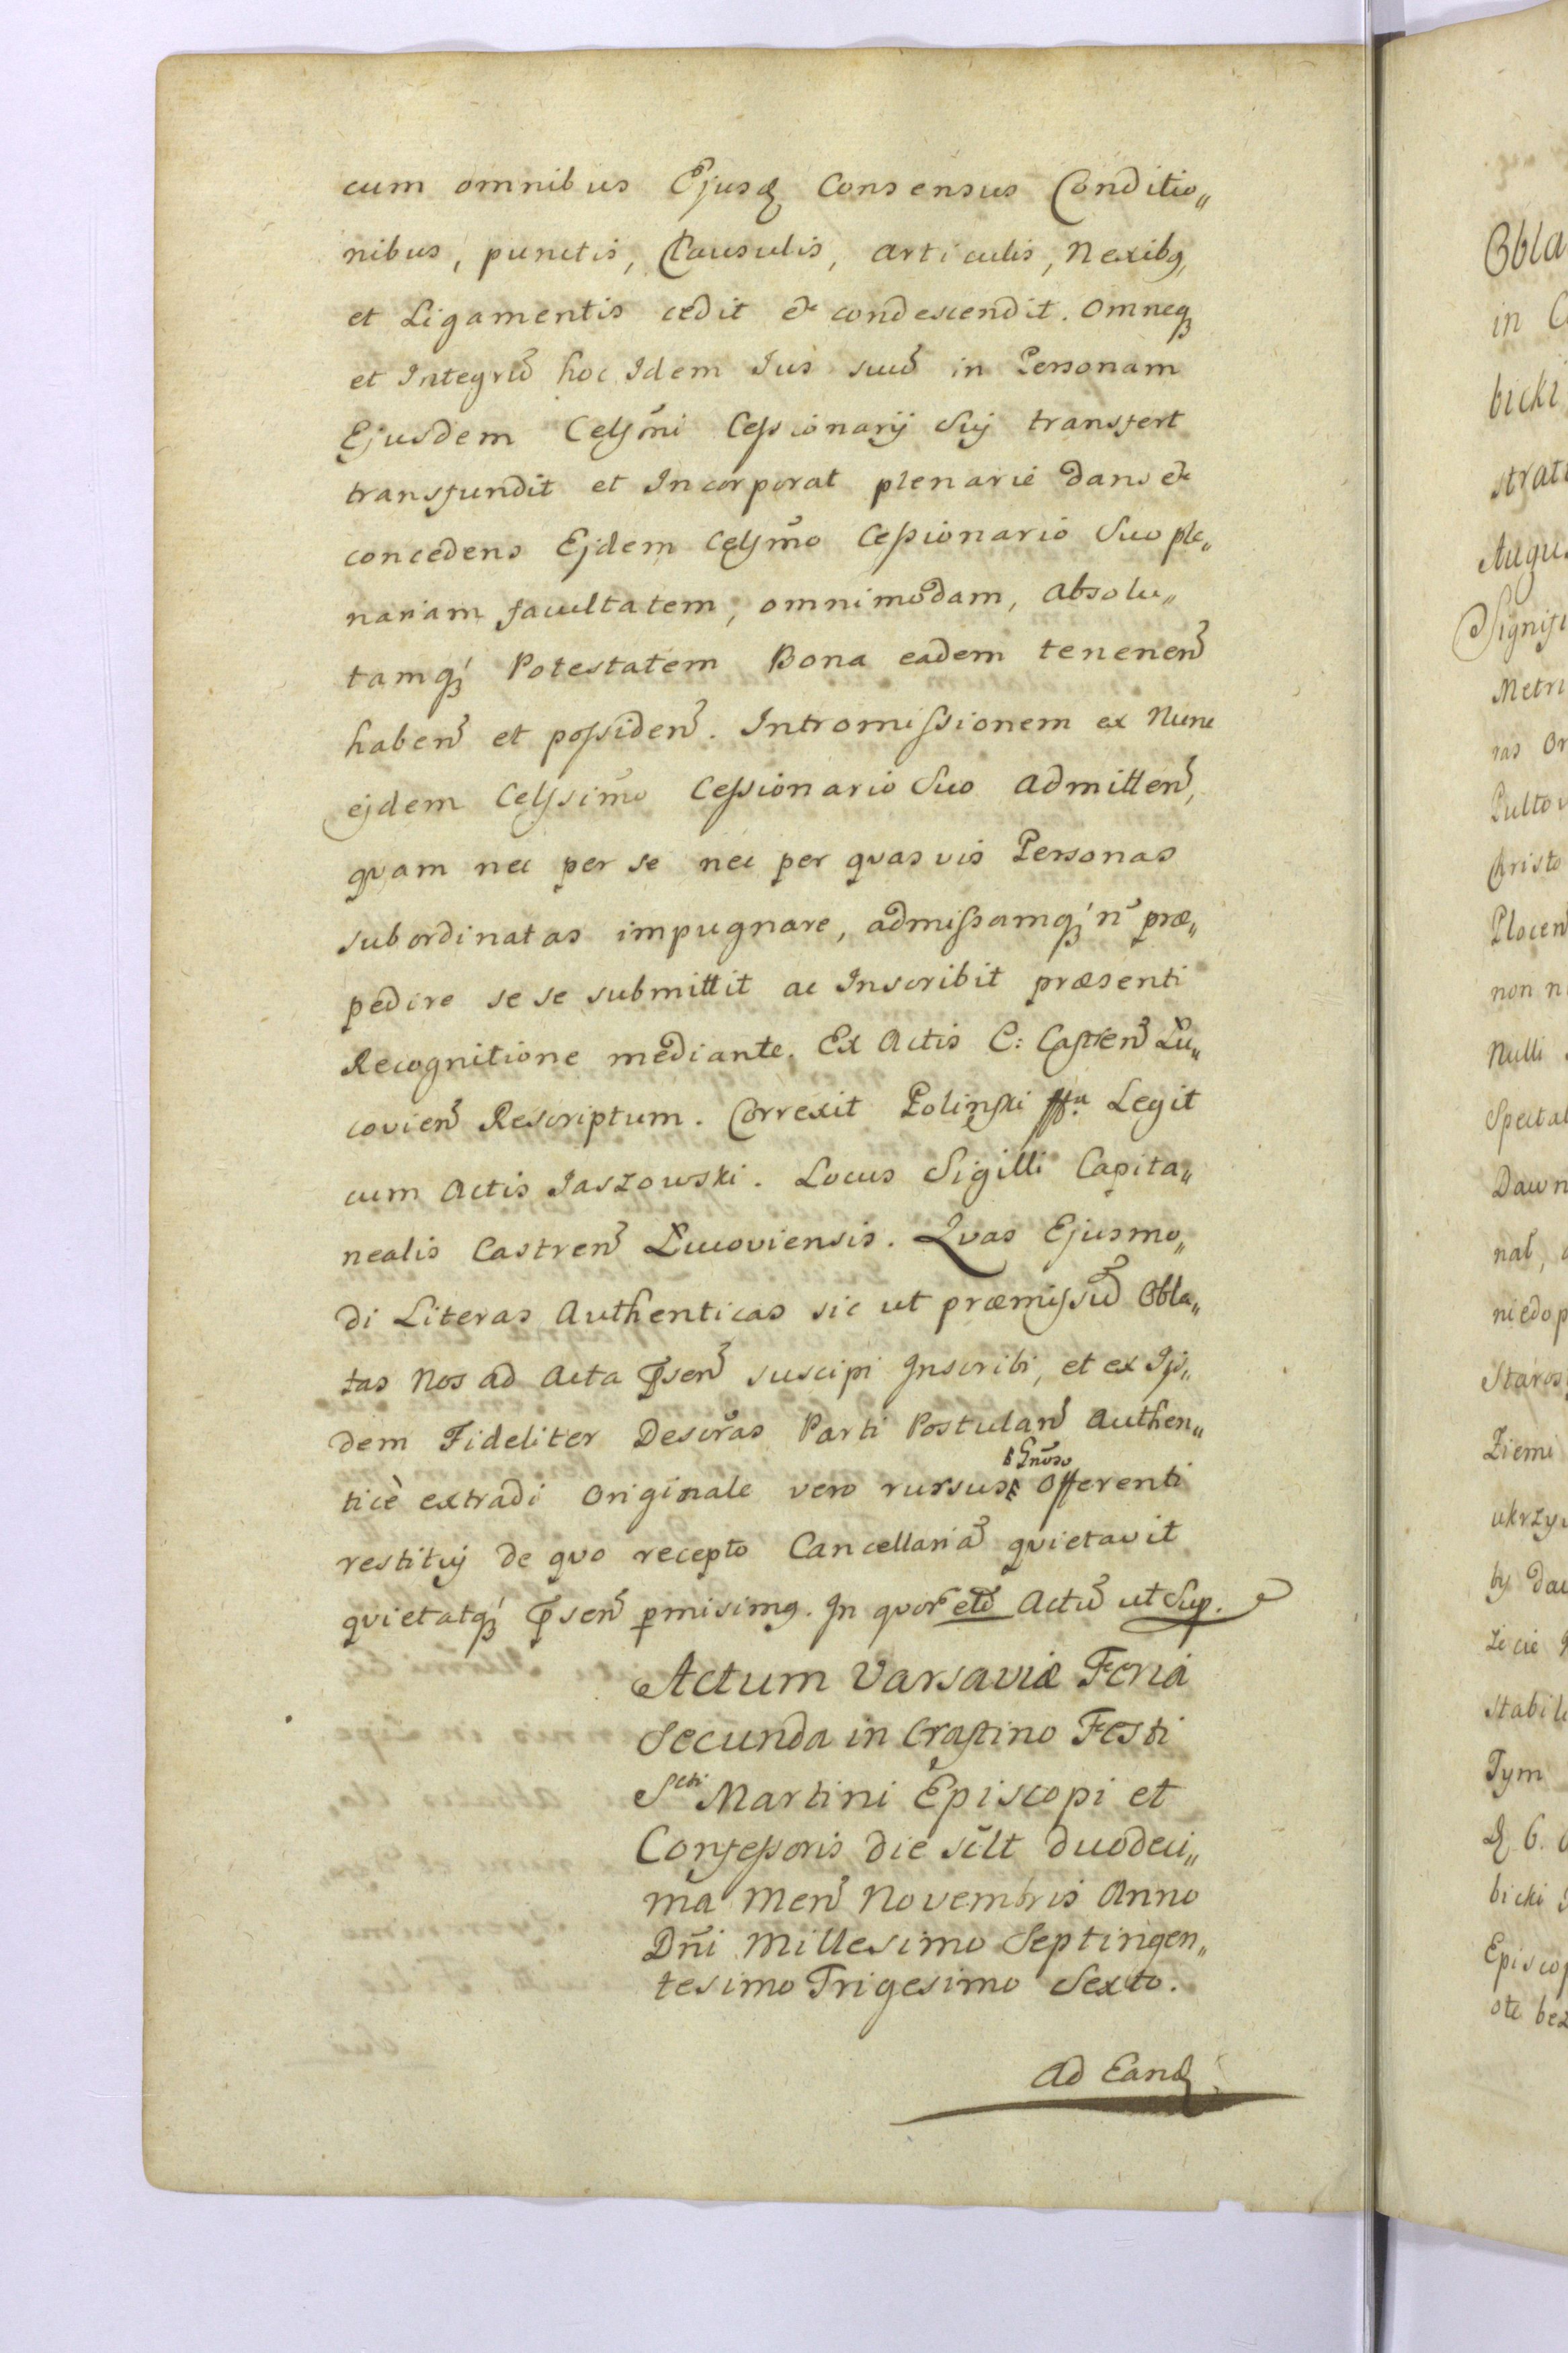 cum omnibus Ejusq Consensus Conditio„
nibus, punctis, Clausulis, articulis, Nexibq,
et Ligamentis cedit et condescendit. Omneq
et Integrũ hoc Idem Ius suũ in Personam
Ejusdem Celsm̃i Cessionarij Sui transfert
transfundit et Incorporat plenarie dans et
concedens Ejdem Celsm̃o Cessionario Suo ple„
nariam facultatem, omnimodam, Absolu„
tamq́ Potestatem Bona eadem tenenen̄
haben̄ et possiden̄. Intromissionem ex Nunc
ejdem Celssimo Cessionario Suo admitten̄,
quam nec per se nec per quasvis Personas
subordinatas impugnare, admissamq́ n̄ præ„
pedire se se submittit ac Inscribit præsenti
Recognitione mediante. Ex Actis C: Castren̄ Łu„
covien̄ Rescriptum. Correxit Polinski Legit
cum Actis Jaszowski. Locus Sigilli Capita„
nealis Castren̄ Łucoviensis. Quas Ejusmo„
di Literas Authenticas sic ut præmissũ Obla„
tas Nos ad Acta Psen̄ suscipi Inscribi, et ex Ijs„
dem Fideliter Descrãs Parti Postulan̄ Authen„
Gnõso
ticè extradi Originale vero rursus Offerenti
restituj de quo recepto Cancellariã quietavit
quietatq́ Psen̄ pmisimq. In quor̃ etc̃ Actũ ut Sup.
Actum Varsaviæ Feria
Secunda in Crastino Festi
Scti Martini Episcopi et
Confessoris die sclt duodeci„
ma Men̄ Novembris Anno
Dn̄i Millesimo Septingen„
tesimo Trigesimo Sexto.
Ad Eandq
Obla
in C
bicki
strat
Augus
Signifi
Metri
ras Or
Pulto
Christo
Plocen
non n
Nulli
Spectab
Dawn
nal,
niedop
Staros
Ziemi
ukrzy
by dau
Stabil
Tym
bicki
Episcop
ote bez